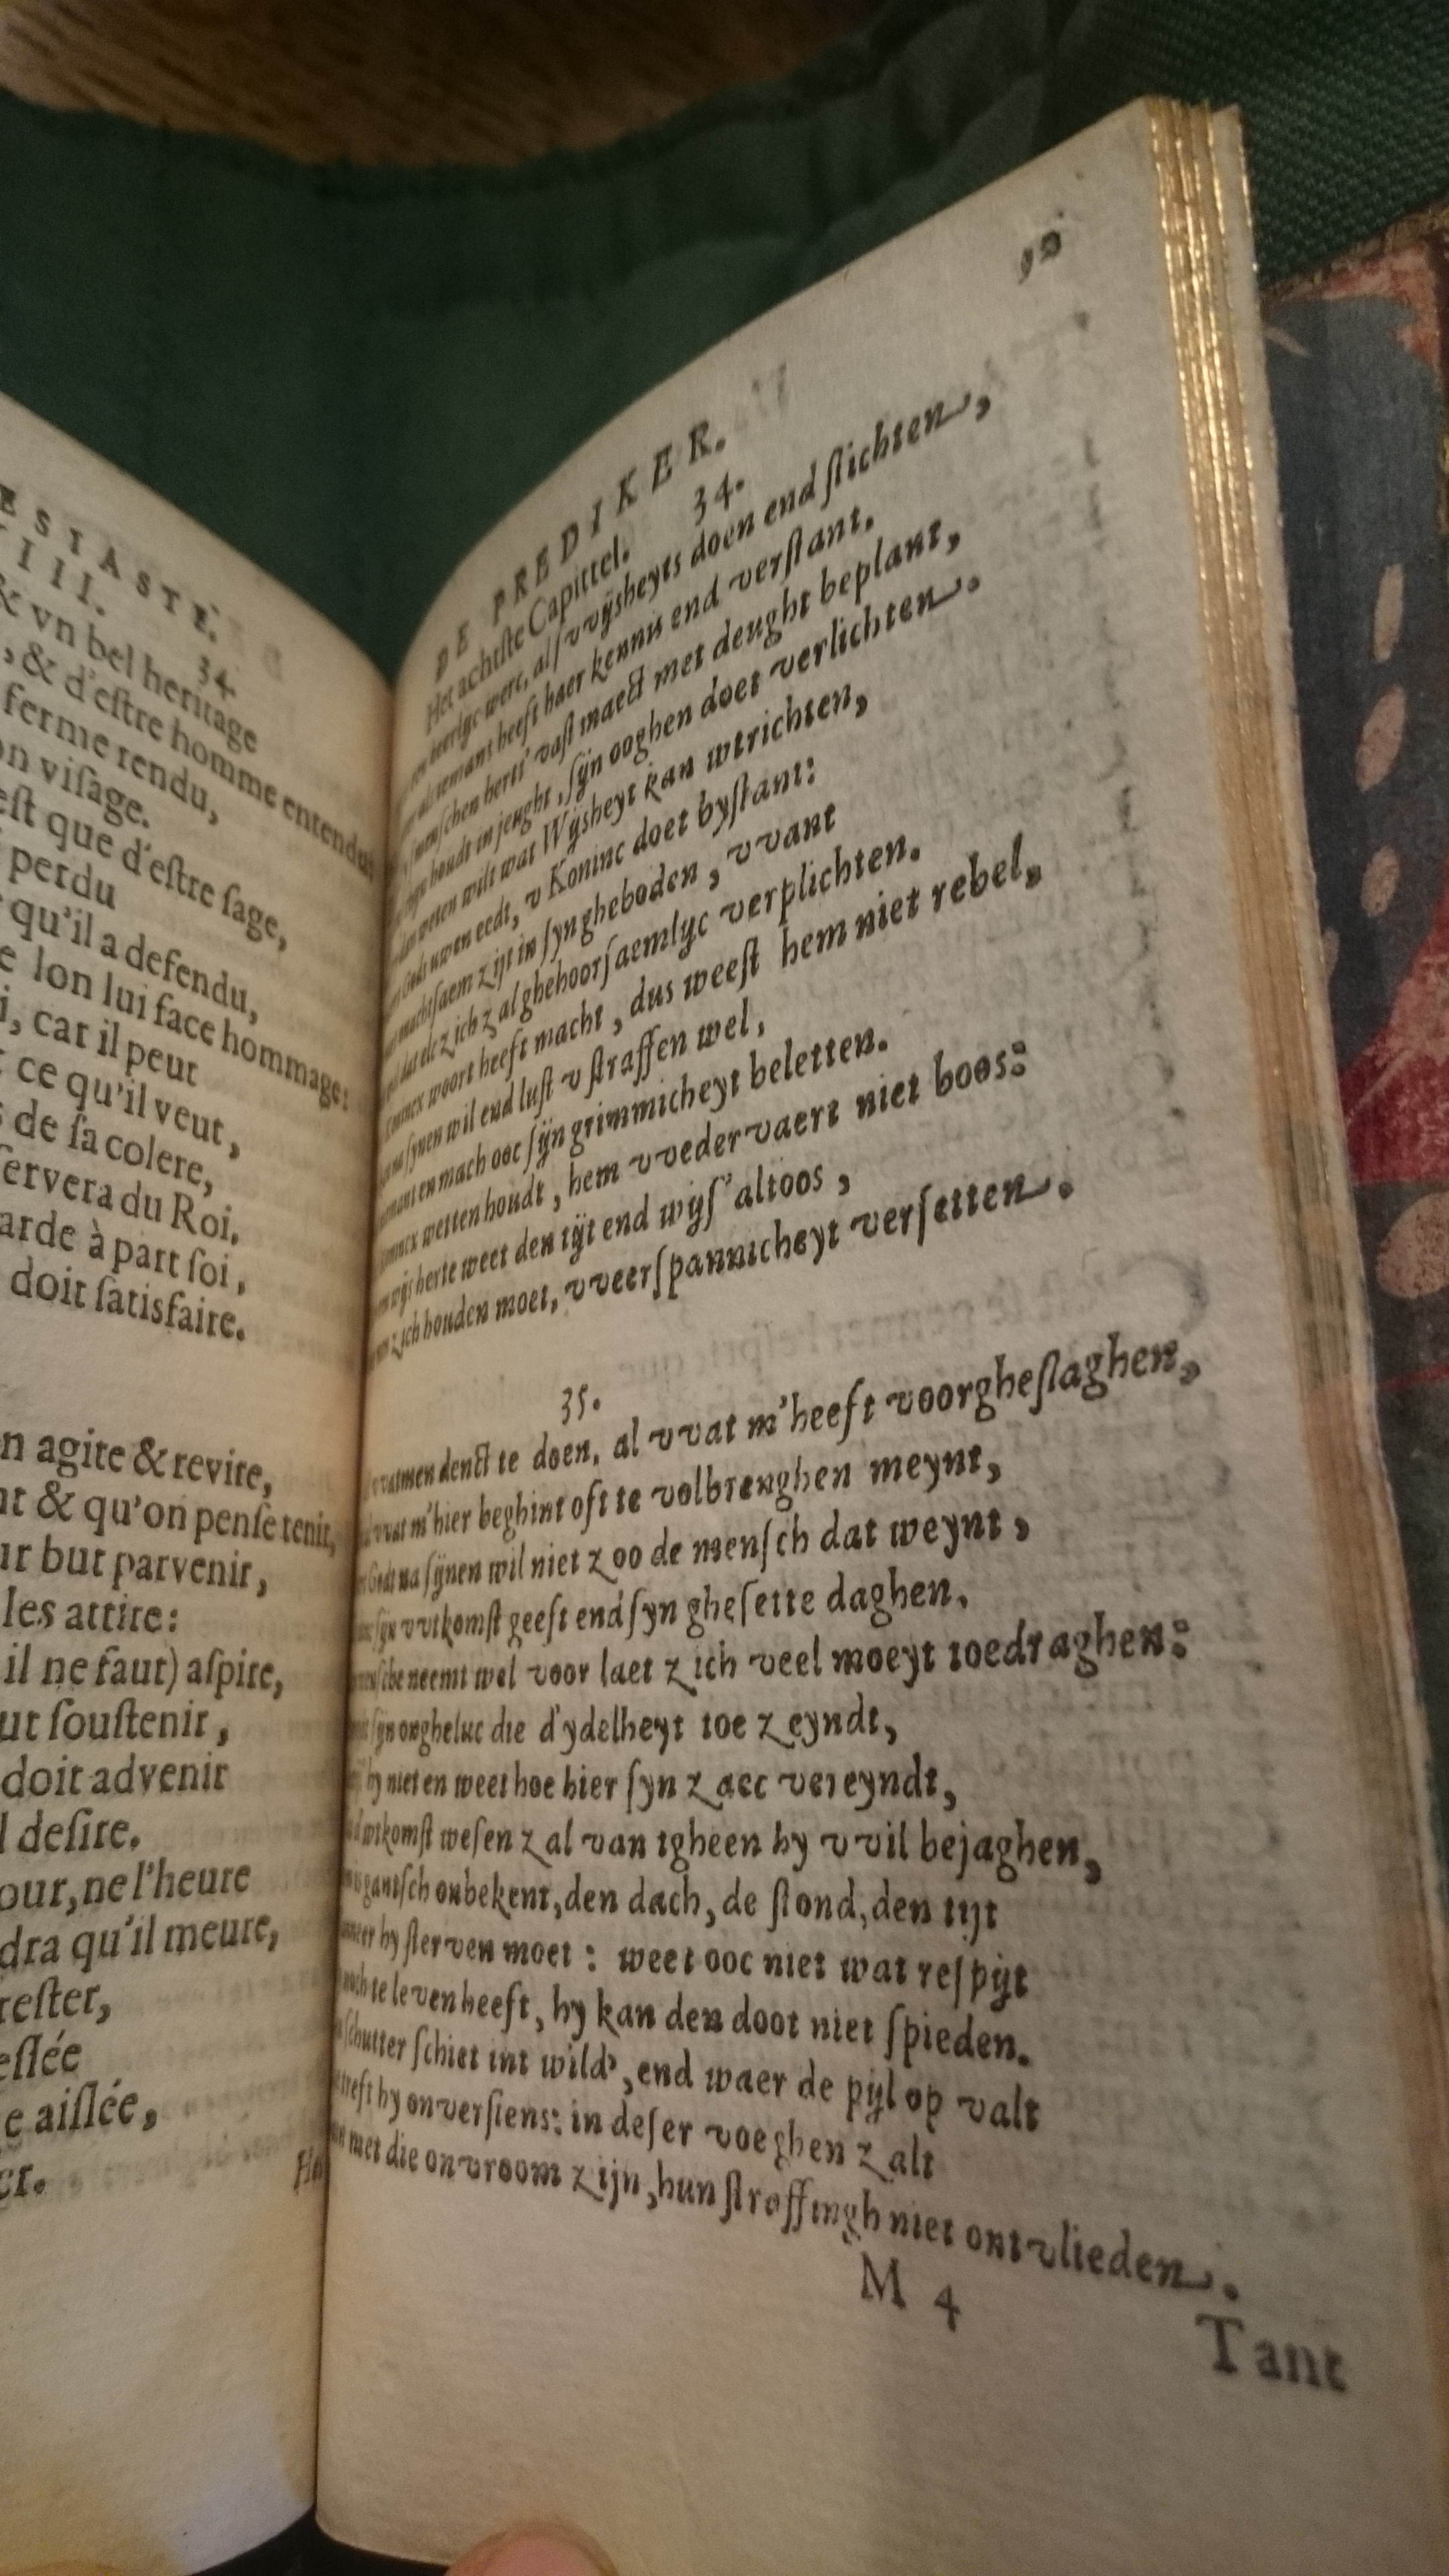 ESIASTE.
III.
34.
& vn bel heritage
, & d'eſtre homme entendu
ferme rendu,
on viſage.
eſt que d'eſtre ſage,
perdu
qu'il a defendu,
e lon lui face hommage:
i, car il peut
ce qu'il veut,
s de ſa colere,
ſervera du Roi,
arde à part ſoi,
doit ſatisfaire.
n agite & revire,
nt & qu'on penſe tenir,
ur but parvenir,
les attire:
il ne faut) aſpire,
ut ſouſtenir,
doit advenir
l deſire.
our, ne l'heure
dra qu'il meure,
reſter,
eſlée
e aiſlée,
er.
DE PREDIKER.
Het achtſte Capittel.
34.
heerlyc werc, alſ vvijsheyts doen end ſtichten,
yemant heeft haer kennis end verſtant.
menſchen hert' vaſt maect met deught beplant,
houdt in jeught, ſijn ooghen doet verlichten.
weten wilt wat Wijsheyt kan wtrichten,
uwen eedt, v Koninc doet byſtant:
zijt in ſyn gheboden, vvant
dat elc zich zal ghehoorſaemlyc verplichten.
woort heeft macht, dus weeſt hem niet rebel,
ſynen wil end luſt v ſtraffen wel,
en mach ooc ſijn grimmicheyt beletten.
wetten houdt, hem vvedervaert niet boos:
herte weet den tijt end wijſ' altoos,
zich houden moet, vveerſpannicheyt verſetten.
35.
vvatmen denct te doen, al vvat m'heeft voorgheſlaghen,
vvat m'hier beghint oft te volbrenghen meynt,
Godt na ſijnen wil niet zoo de menſch dat weynt,
ſyn vvtkomſt geeft end ſyn gheſette daghen.
neemt wel voor laet zich veel moeyt toedraghen:
ſyn ongheluc die d'ydelheyt toe zeyndt,
hy niet en weet hoe hier ſyn zaec vereyndt,
wtkomſt weſen zal van tgheen hy vvil bejaghen,
gantſch onbekent, den dach, de ſtond, den tijt
hy ſterven moet: weet ooc niet wat reſpijt
noch te leven heeft, hy kan den doot niet ſpieden.
ſchutter ſchiet int wild', end waer de pijl op valt
treft hy onverſiens: in deſer voeghen zalt
met die onvroom zijn, hun ſtraffingh niet ontvlieden.
M 4
Tant